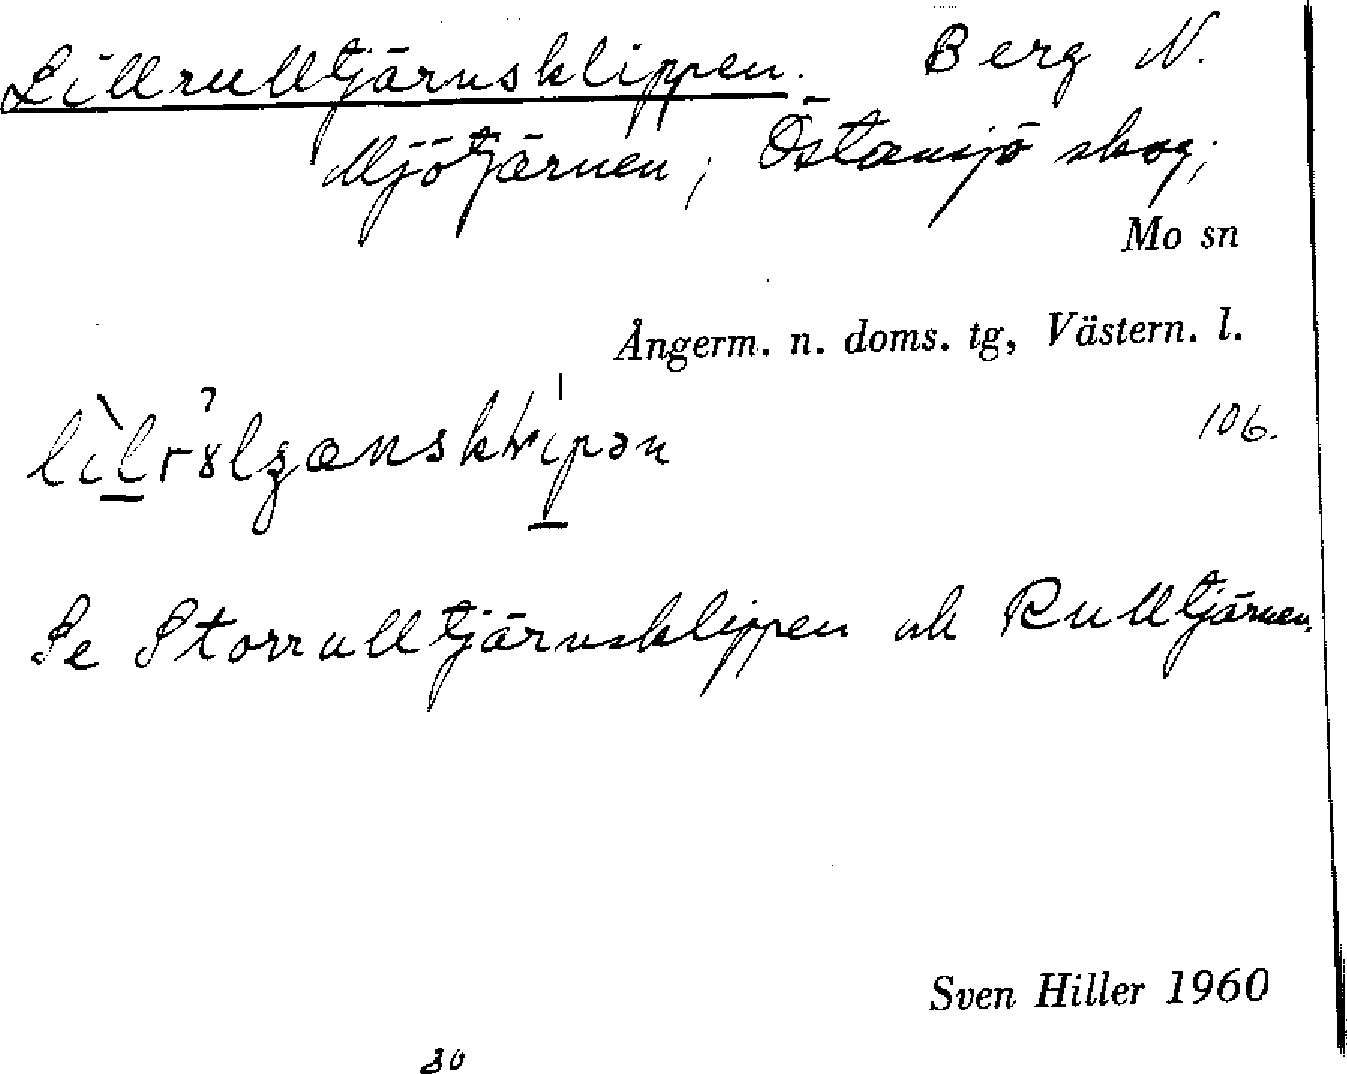 Lillrulltjärnsklippen. Berg N.
Mjötjärnen; Östansjö skog;
Mo sn
Ångerm. n. doms. tg, Västern. l.
106.
Se Storrulltjärnsklippen och Rulltjärnen.
Sven Hiller 1960
30